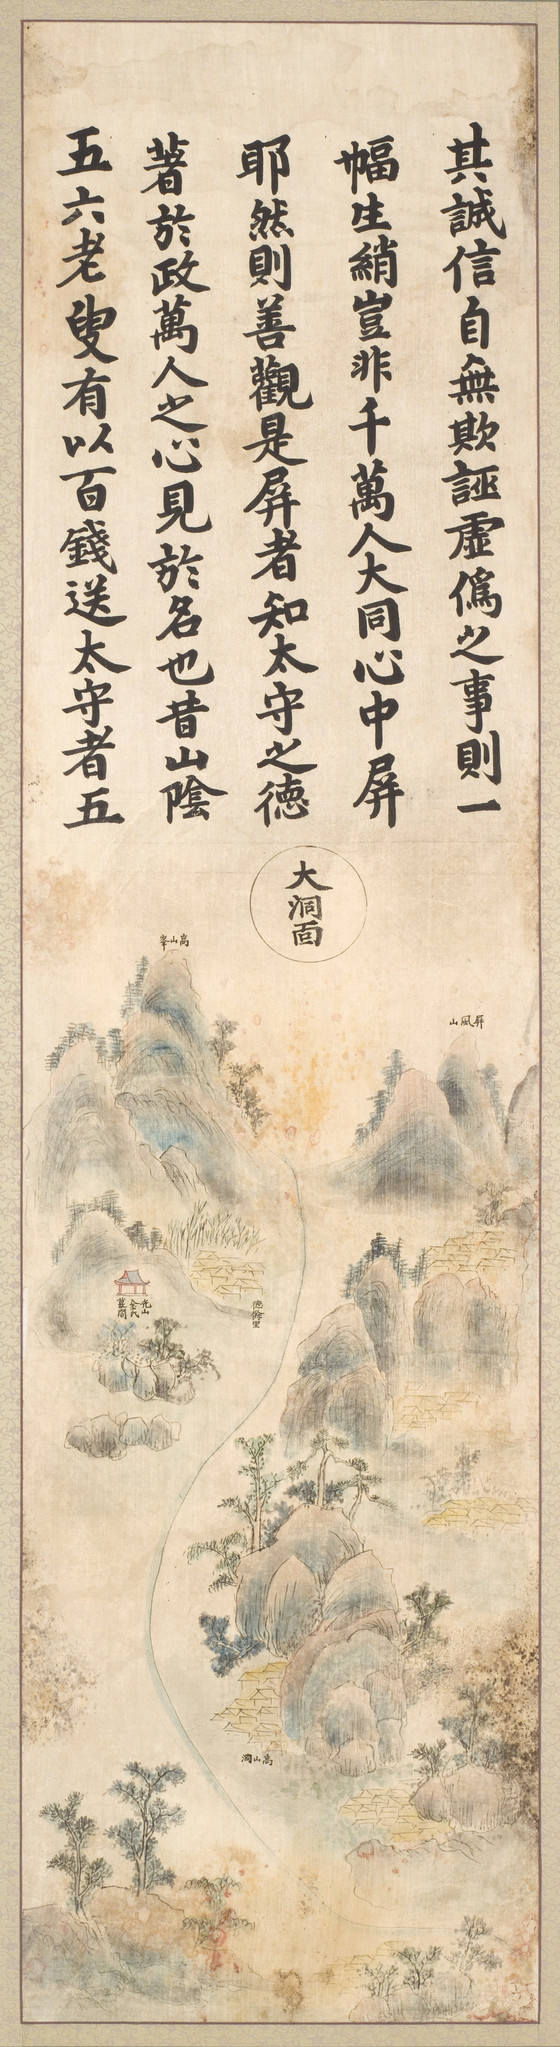 其誠信自無欺誣虛僞之事則一
幅生綃豈非千萬人大同心中屏
耶然則善觀是屏者知太守之德
著於政萬人之心見於名也昔山陰
五六老叟有以百錢送太守者五
大洞面
高山峯
屏風山
光山
金氏
德餘里
高山洞